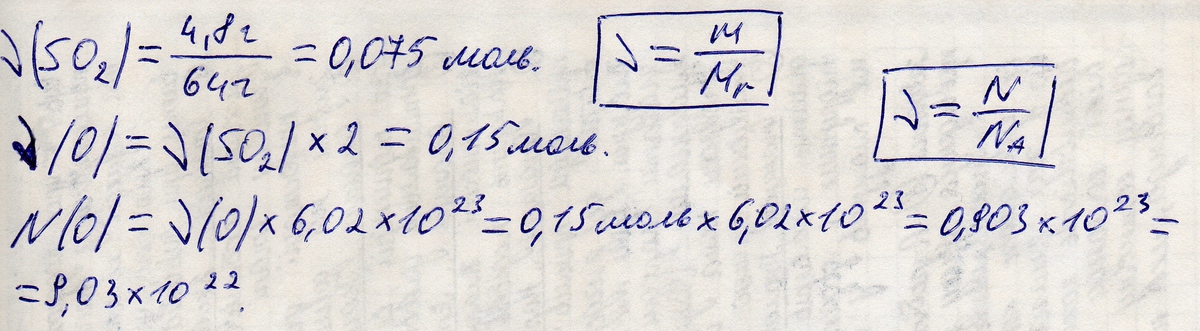 ν(SO₂) = 4,8г / 64г = 0,075 моль. ν = m / Mr
ν(O) = ν(SO₂) × 2 = 0,15 моль. ν = N / N_A
N(O) = ν(O) × 6,02 × 10²³ = 0,15 моль × 6,02 × 10²³ = 0,903 × 10²³ =
= 9,03 × 10²².